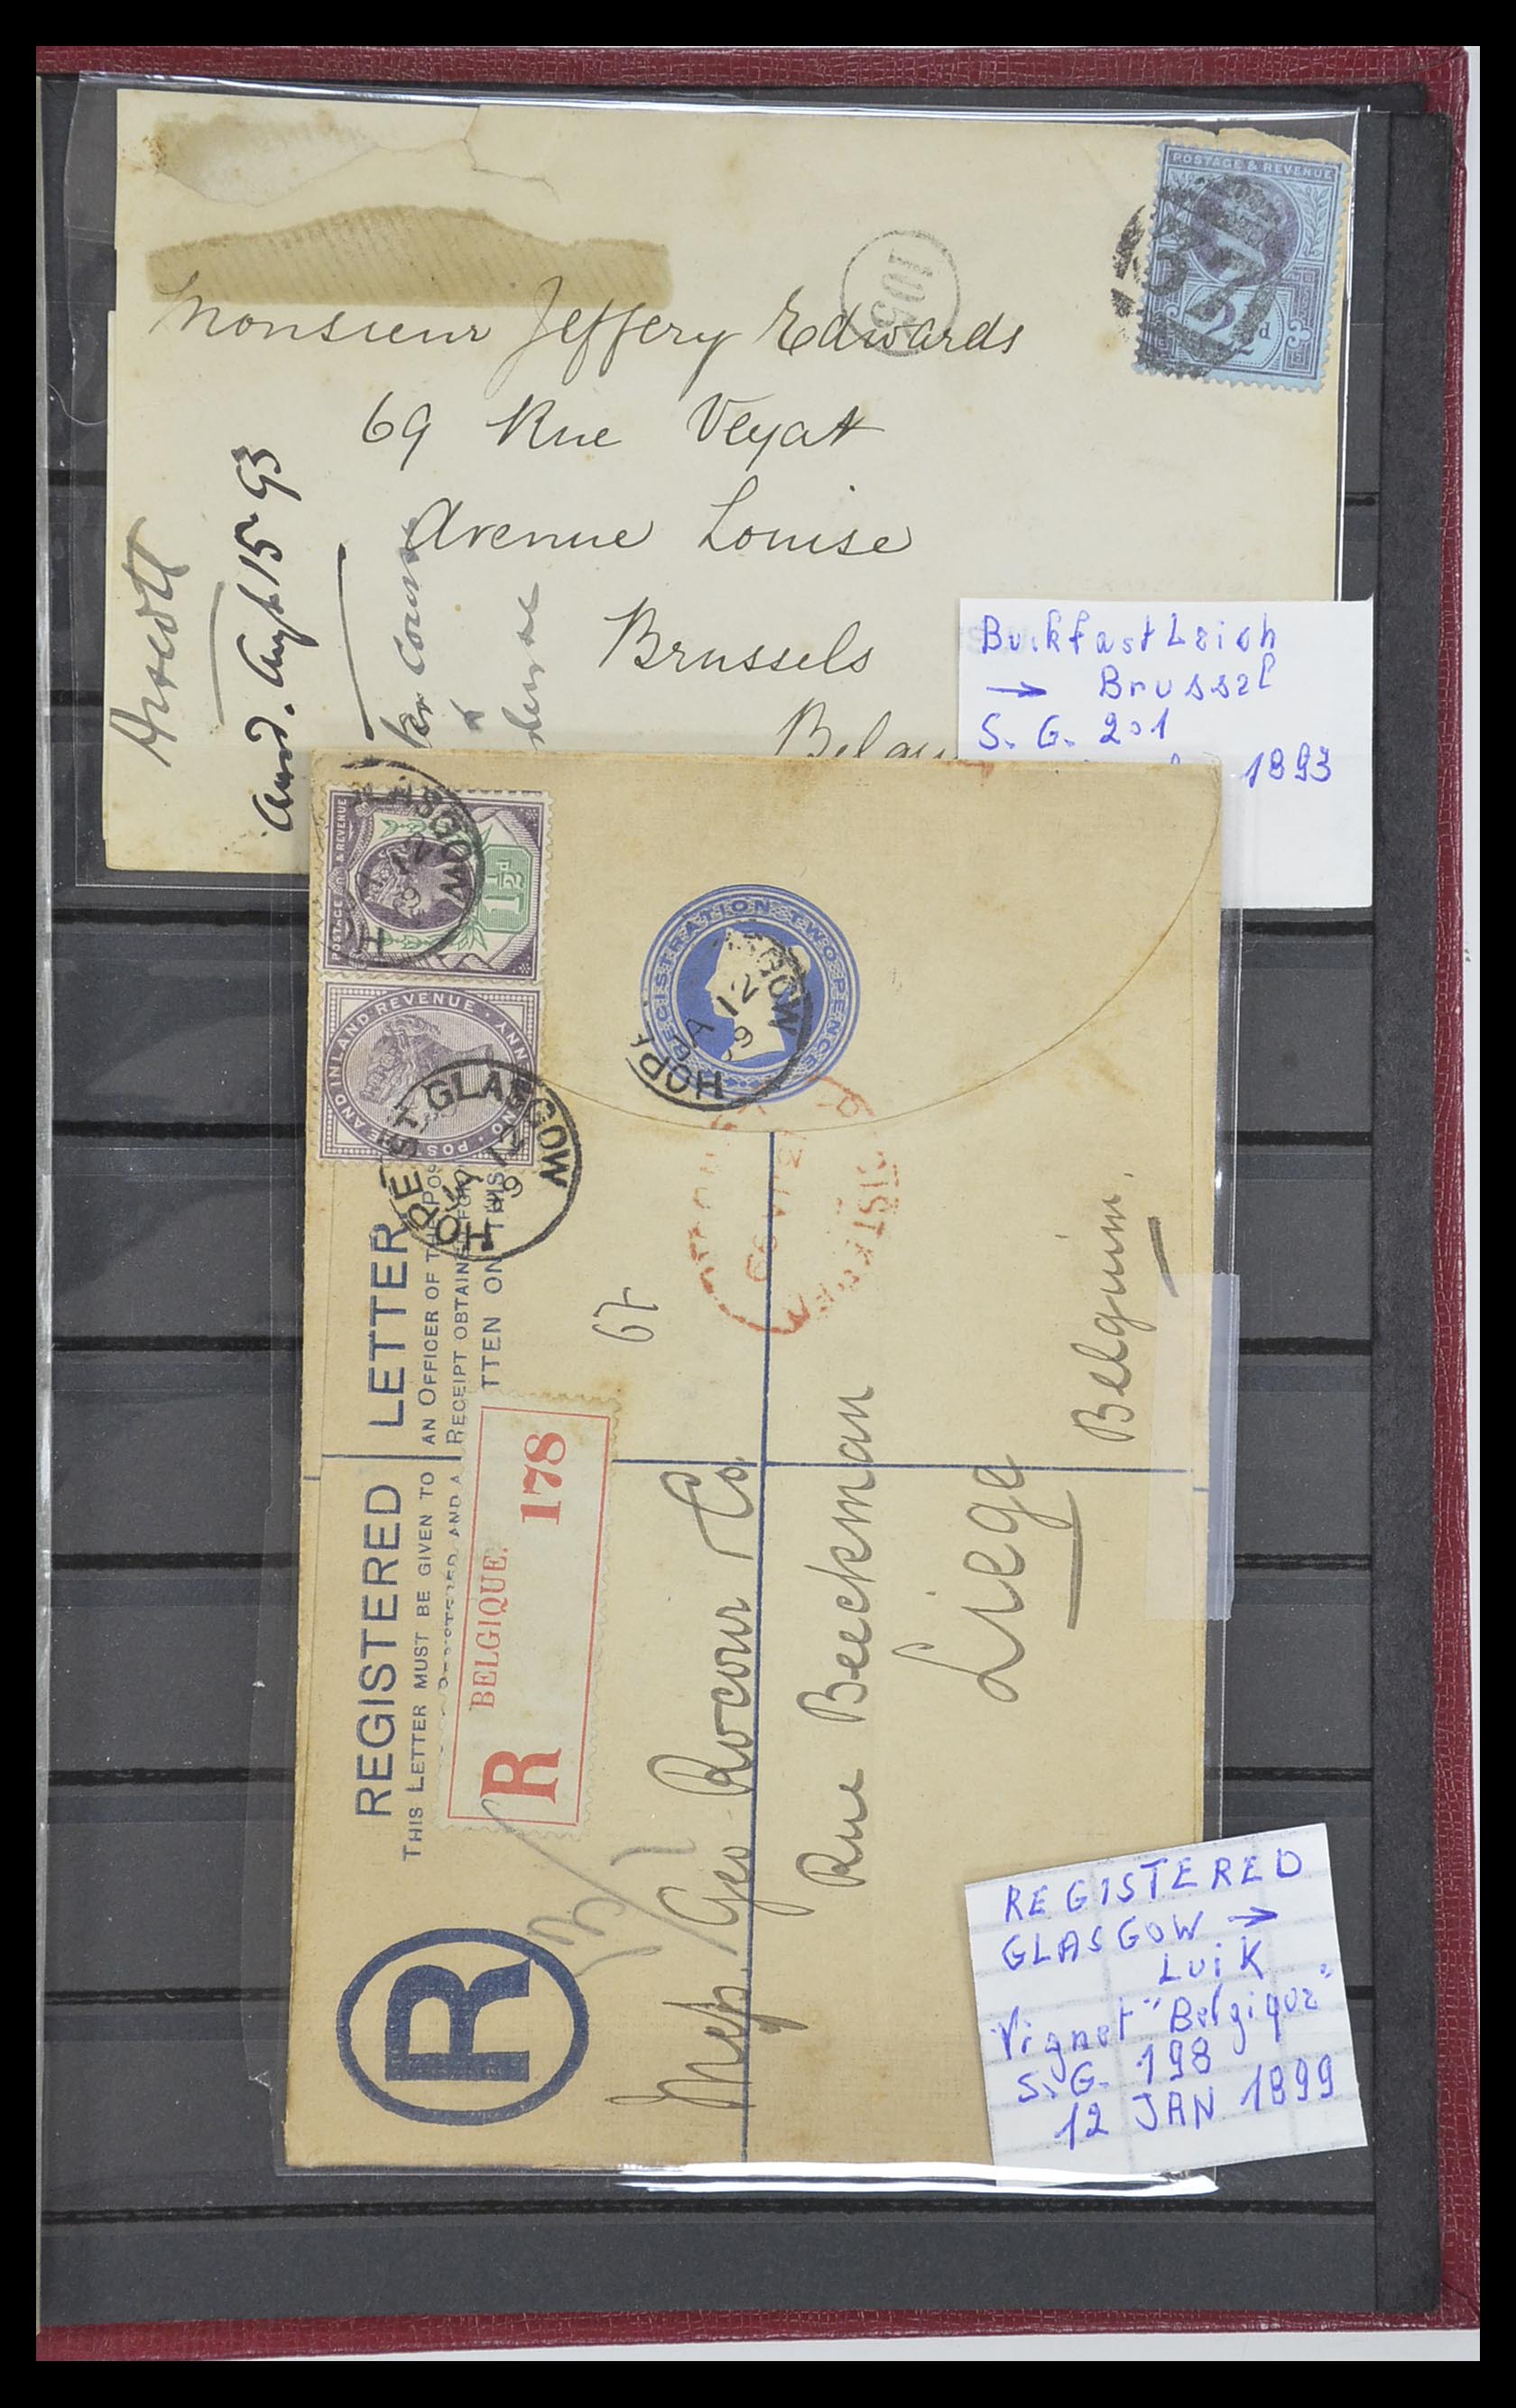 POSTAGE & REVENUE
2½d
105
Monsieur Jeffery Edwards
69 Rue Veyat
Avenue Louise
Brussels
Augt 15 93
BuckfastLeigh
→ Brussel
S. G. 201
1893
POSTAGE & REVENUE
1½d
GLASGOW
12
POSTAGE AND INLAND REVENUE
HOPE ST. GLASGOW
12
REGISTRATION TWO PENCE
HOPE
JA 12
99
REGISTERED LETTER.
THIS LETTER MUST BE GIVEN TO AN OFFICER OF THE POST
AND A RECEIPT OBTAINED FOR
TTEN ON THIS
R BELGIQUE. 178
67
R
Geo Rocour & Co.
Rue Beeckman
Liege
Belgium.
REGISTERED
GLASGOW →
LuiK
Vignet "Belgique"
S. G. 198
12 JAN 1899